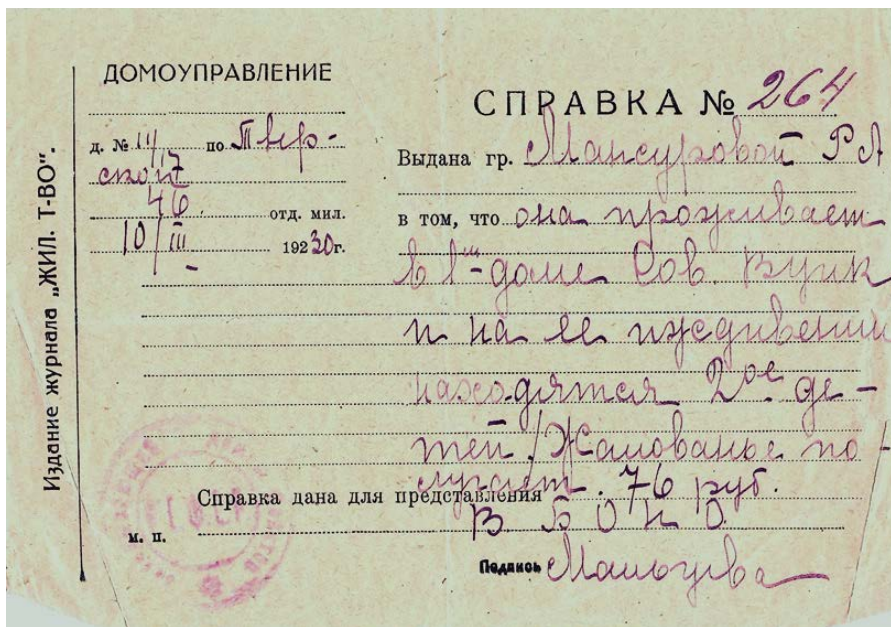 Издание журнала „ЖИЛ. Т-ВО".
ДОМОУПРАВЛЕНИЕ
д. № 14/ по Твер-
ской
46 отд. мил.
10/III 1930г.
СПРАВКА № 264
Выдана гр. Мансуровой Р А
в том, что она проживает
в 1ᵐ-доме Сов. ВЦИК
и на ее иждивении
находятся 2ᵒᵉ де-
тей /Жалованье по-
лучает. 76 руб.
Справка дана для представления
В Б О Н О
м. п.
Подпись Мальцева